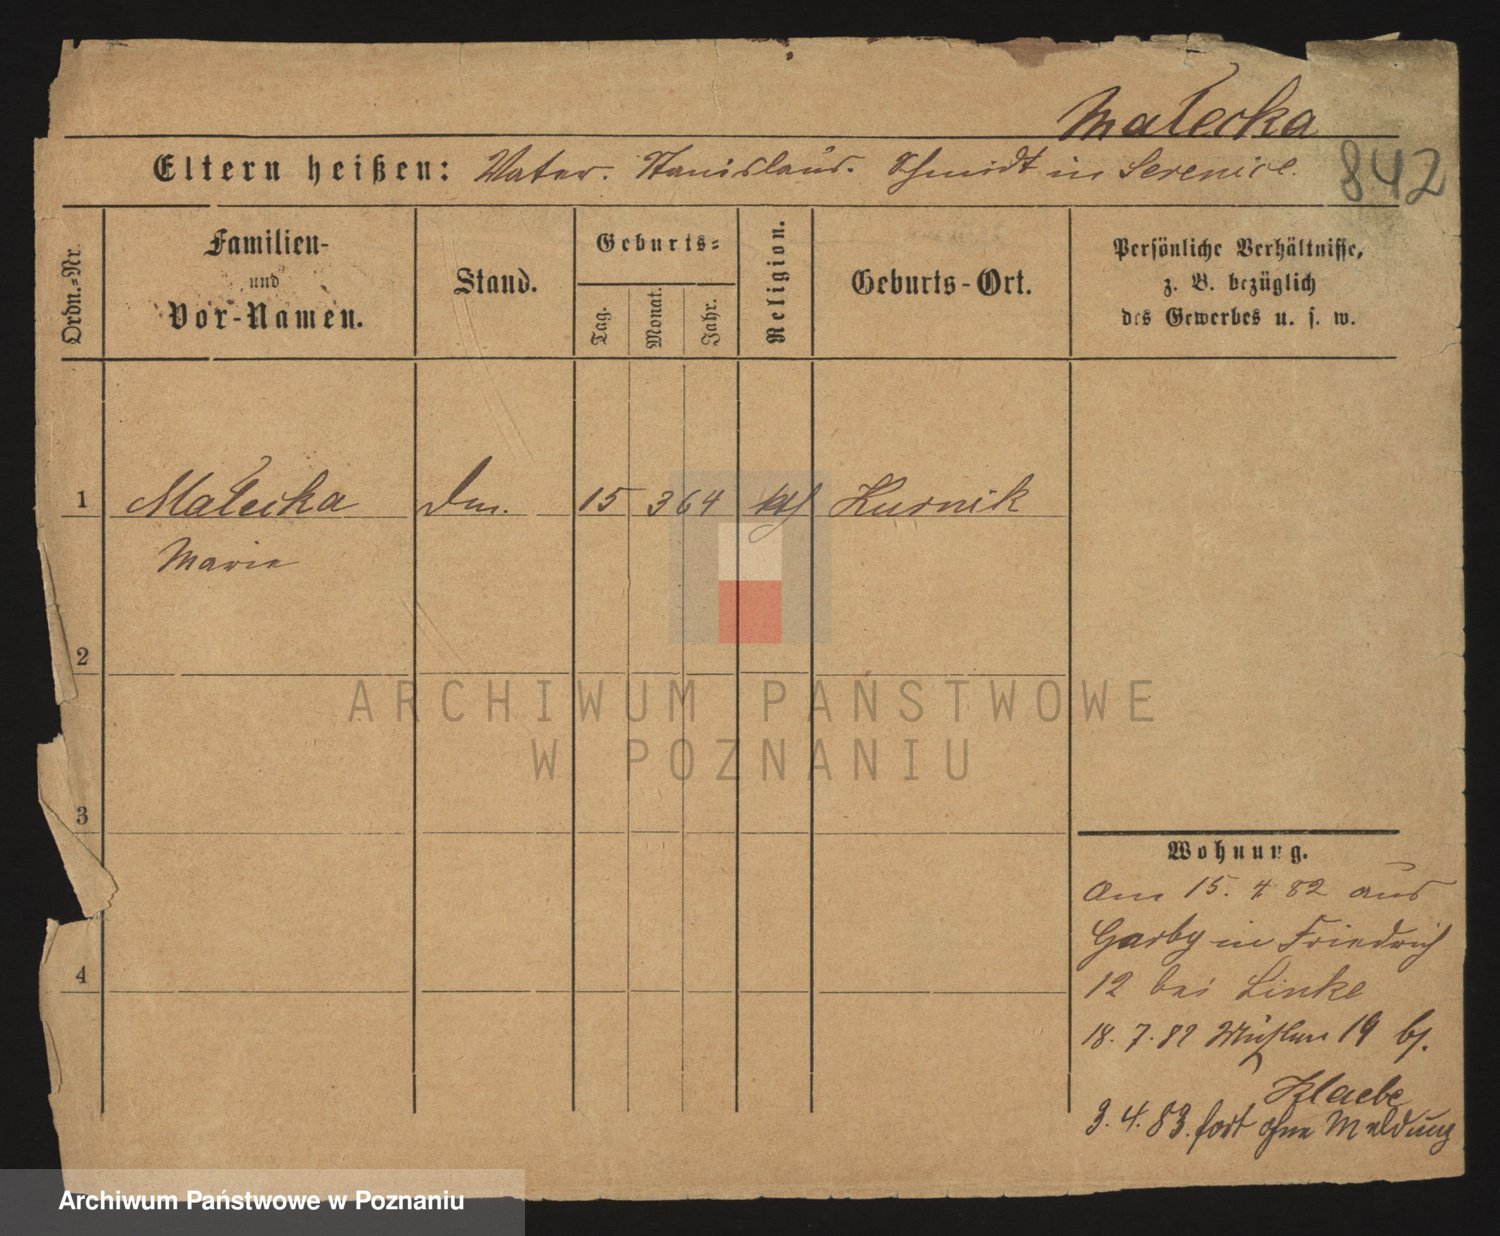 Małecka
842
Eltern heißen: Vater. Stanislaus. Schmidt in
Ordn.-Nr.
Familien-
und
Vor-Namen.
Stand.
Geburts-
Tag.
Monat.
Jahr.
Religion.
Geburts-Ort.
Persönliche Verhältnisse,
z. B. bezüglich
des Gewerbes u. s. w.
1 Małecka 15 3 64 kth Kurnik
Marie
2
3
4
Wohnung.
Am 15. 4 82 aus
Garby in Friedrich
12 bei Linke
18. 7. 82 Mühlen 19 bj.
Klaebe
3. 4. 83. fort ohne Meldung
ARCHIWUM PAŃSTWOWE
W POZNANIU
Archiwum Państwowe w Poznaniu